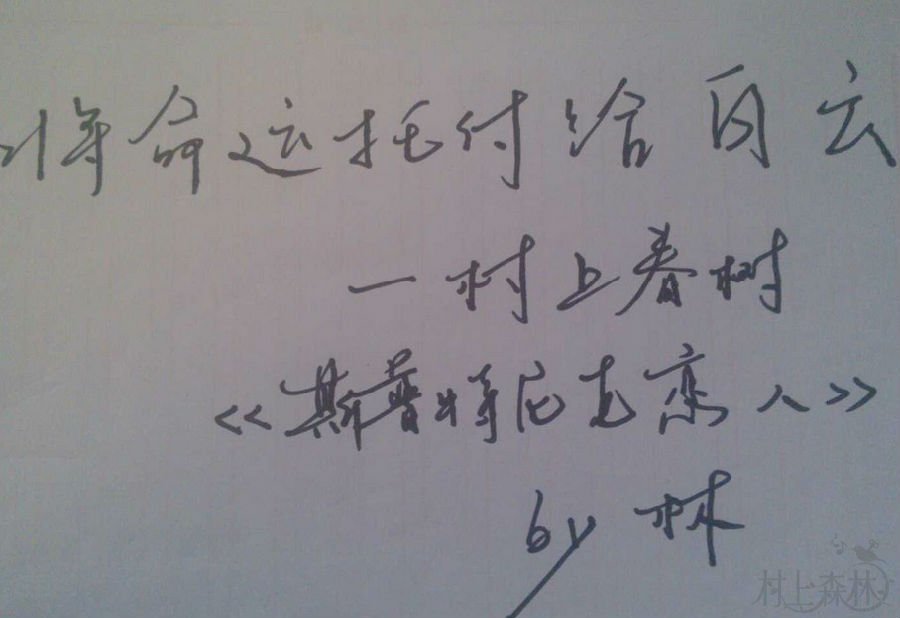 将命运托付给白云
一村上春树
<<斯普特尼克恋人>>
by 林
村上森林